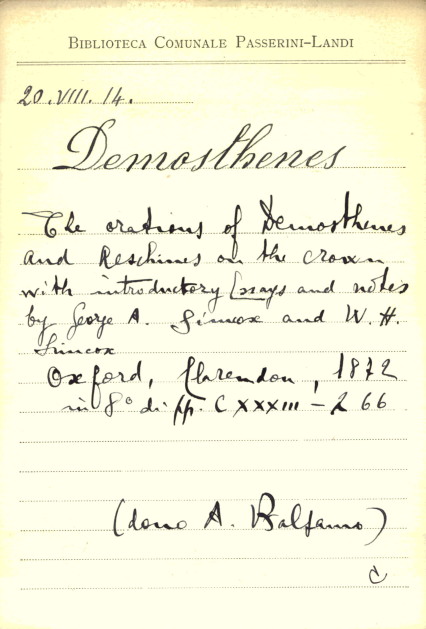 BIBLIOTECA COMUNALE PASSERINI-LANDI
20.VIII.14.
Demosthenes
The orations of Demosthenes
and Aeschines on the crown
with introductory Essays and notes
by George A. Simcox and W. H.
Simcox
Oxford, Clarendon, 1872
in 8° di pp. CXXXIII - 266
(dono A. Balsamo)
C